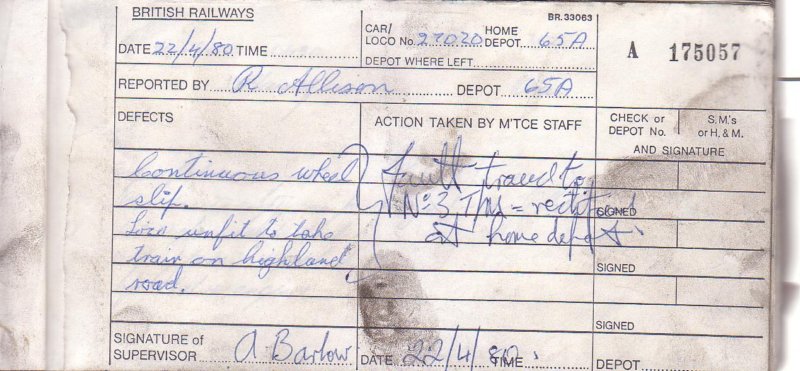 BRITISH RAILWAYS
BR.33063
DATE 22/4/80 TIME
CAR/ LOCO No. 27020 HOME DEPOT 65A
A 175057
DEPOT WHERE LEFT
REPORTED BY R Allison DEPOT 65A
DEFECTS
ACTION TAKEN BY M'TCE STAFF
CHECK or DEPOT No.
S.M.'s or H.& M.
AND SIGNATURE
Continuous wheel
slip.
Loco unfit to take
train on highland
road.
Fault traced to
No 3 T/M = rectified
at home depot.
SIGNED
SIGNED
SIGNED
SIGNATURE of SUPERVISOR A Barlow DATE 22/4/80. TIME
DEPOT